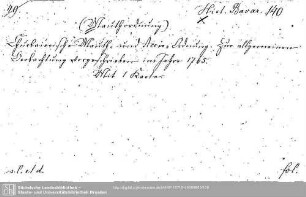 99
Hist. Bavar. 140
(Mauthordnung)
Churbaierische Mauth- und Accis-Ordnung. Zur allgemeinen
Beobachtung vorgeschrieben im Jahre 1765.
Mit 1 Karte.
s. l. et d.
fol.
Sächsische Landesbibliothek -
Staats- und Universitätsbibliothek Dresden